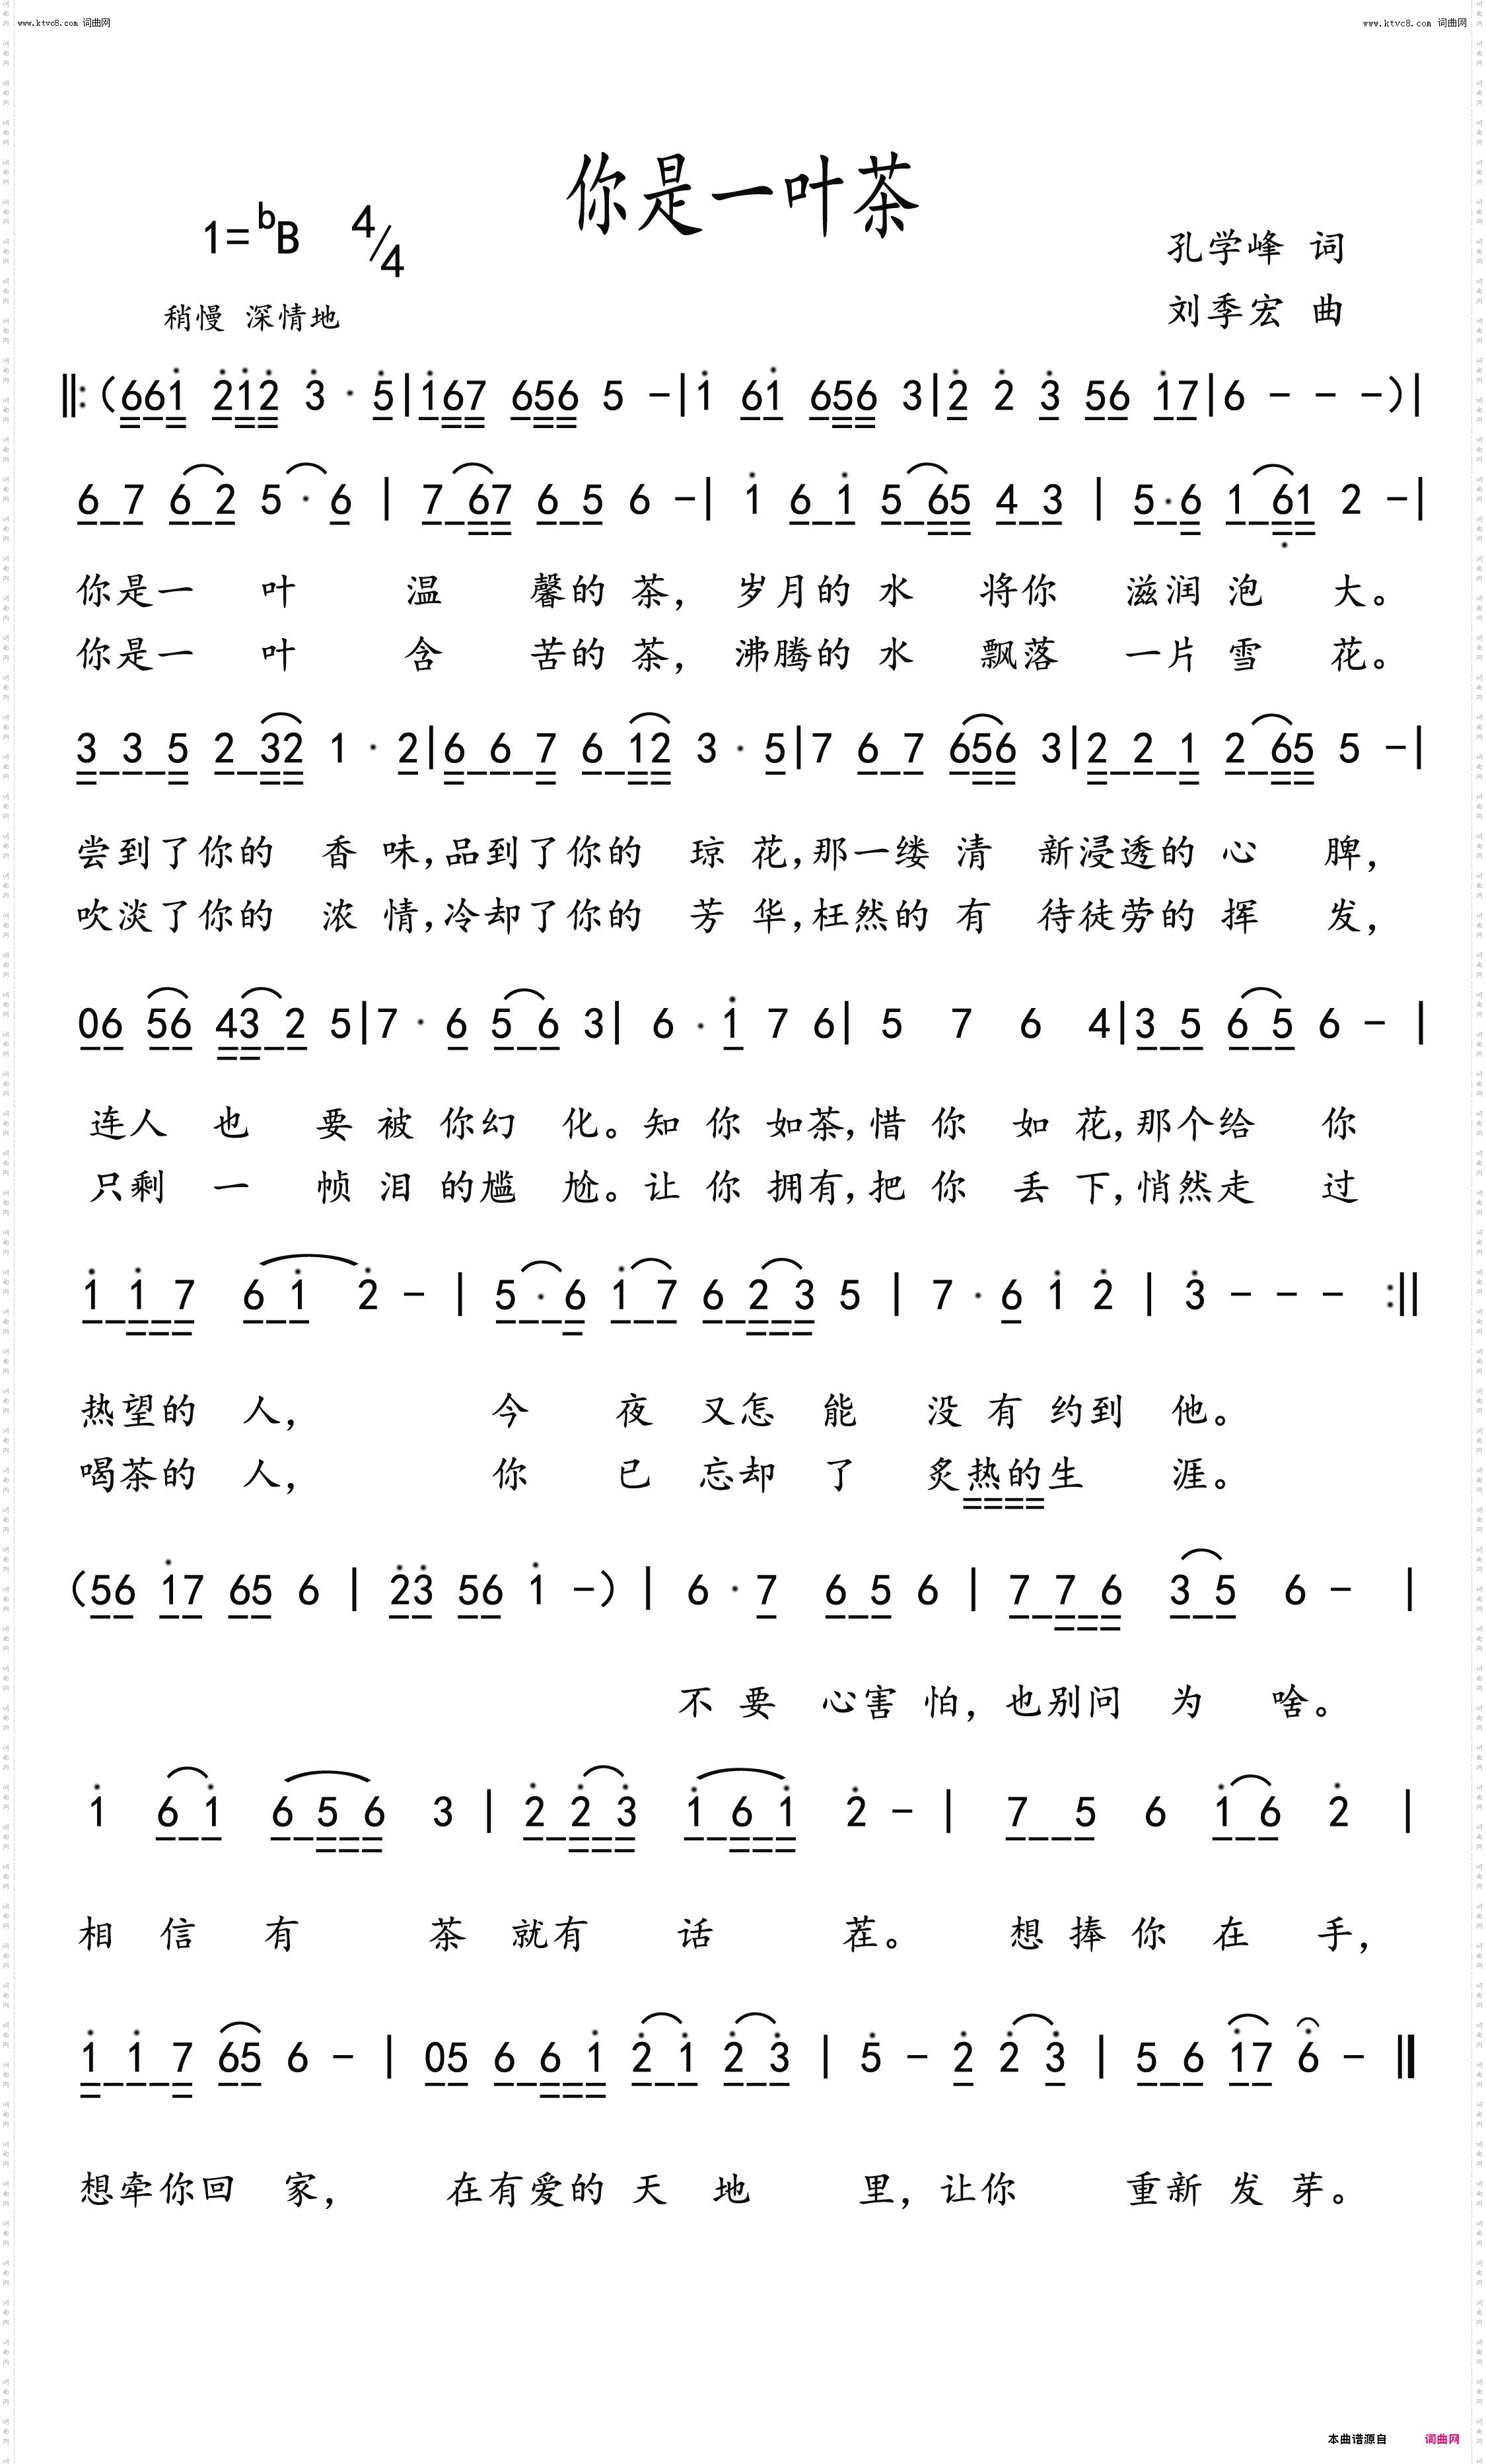 www.ktvc8.com 词曲网
www.ktvc8.com 词曲网
你是一叶茶
1=bB 4/4
孔学峰 词
稍慢 深情地
刘季宏 曲
‖:(661 212 3 · 5|167 656 5 -|1 61 656 3|2 2 3 56 17|6 - - -)|
6 7 6 2 5 · 6 | 7 67 6 5 6 -| 1 6 1 5 65 4 3 | 5·6 1 61 2 -|
你是一 叶 温 馨的 茶, 岁月的 水 将你 滋润 泡 大。
你是一 叶 含 苦的 茶, 沸腾的 水 飘落 一片 雪 花。
3 3 5 2 32 1 · 2|6 6 7 6 12 3 · 5|7 6 7 656 3|2 2 1 2 65 5 -|
尝到了你的 香 味,品到了你的 琼 花,那一缕 清 新浸透的 心 脾,
吹淡了你的 浓 情,冷却了你的 芳 华,枉然的 有 待徒劳的 挥 发,
06 56 43 2 5|7 · 6 5 6 3| 6 · 1 7 6| 5 7 6 4|3 5 6 5 6 - |
连人 也 要 被 你幻 化。知 你 如茶,惜 你 如 花,那个给 你
只剩 一 帧 泪 的尴 尬。让 你 拥有,把 你 丢 下,悄然走 过
1 1 7 6 1 2 - | 5 · 6 1 7 6 2 3 5 | 7 · 6 1 2 | 3 - - - :‖
热望的 人, 今 夜 又怎 能 没 有 约到 他。
喝茶的 人, 你 已 忘却 了 炙热的生 涯。
(56 17 65 6 | 23 56 1 -) | 6 · 7 6 5 6 | 7 7 6 3 5 6 - |
不 要 心害 怕, 也别问 为 啥。
1 6 1 6 5 6 3 | 2 2 3 1 6 1 2 - | 7 5 6 1 6 2 |
相 信 有 茶 就有 话 茬。 想 捧 你 在 手,
1 1 7 65 6 - | 05 6 6 1 2 1 2 3 | 5 - 2 2 3 | 5 6 17 6 - ‖
想牵你回 家, 在有爱的 天 地 里, 让你 重新 发 芽。
本曲谱源自 词曲网